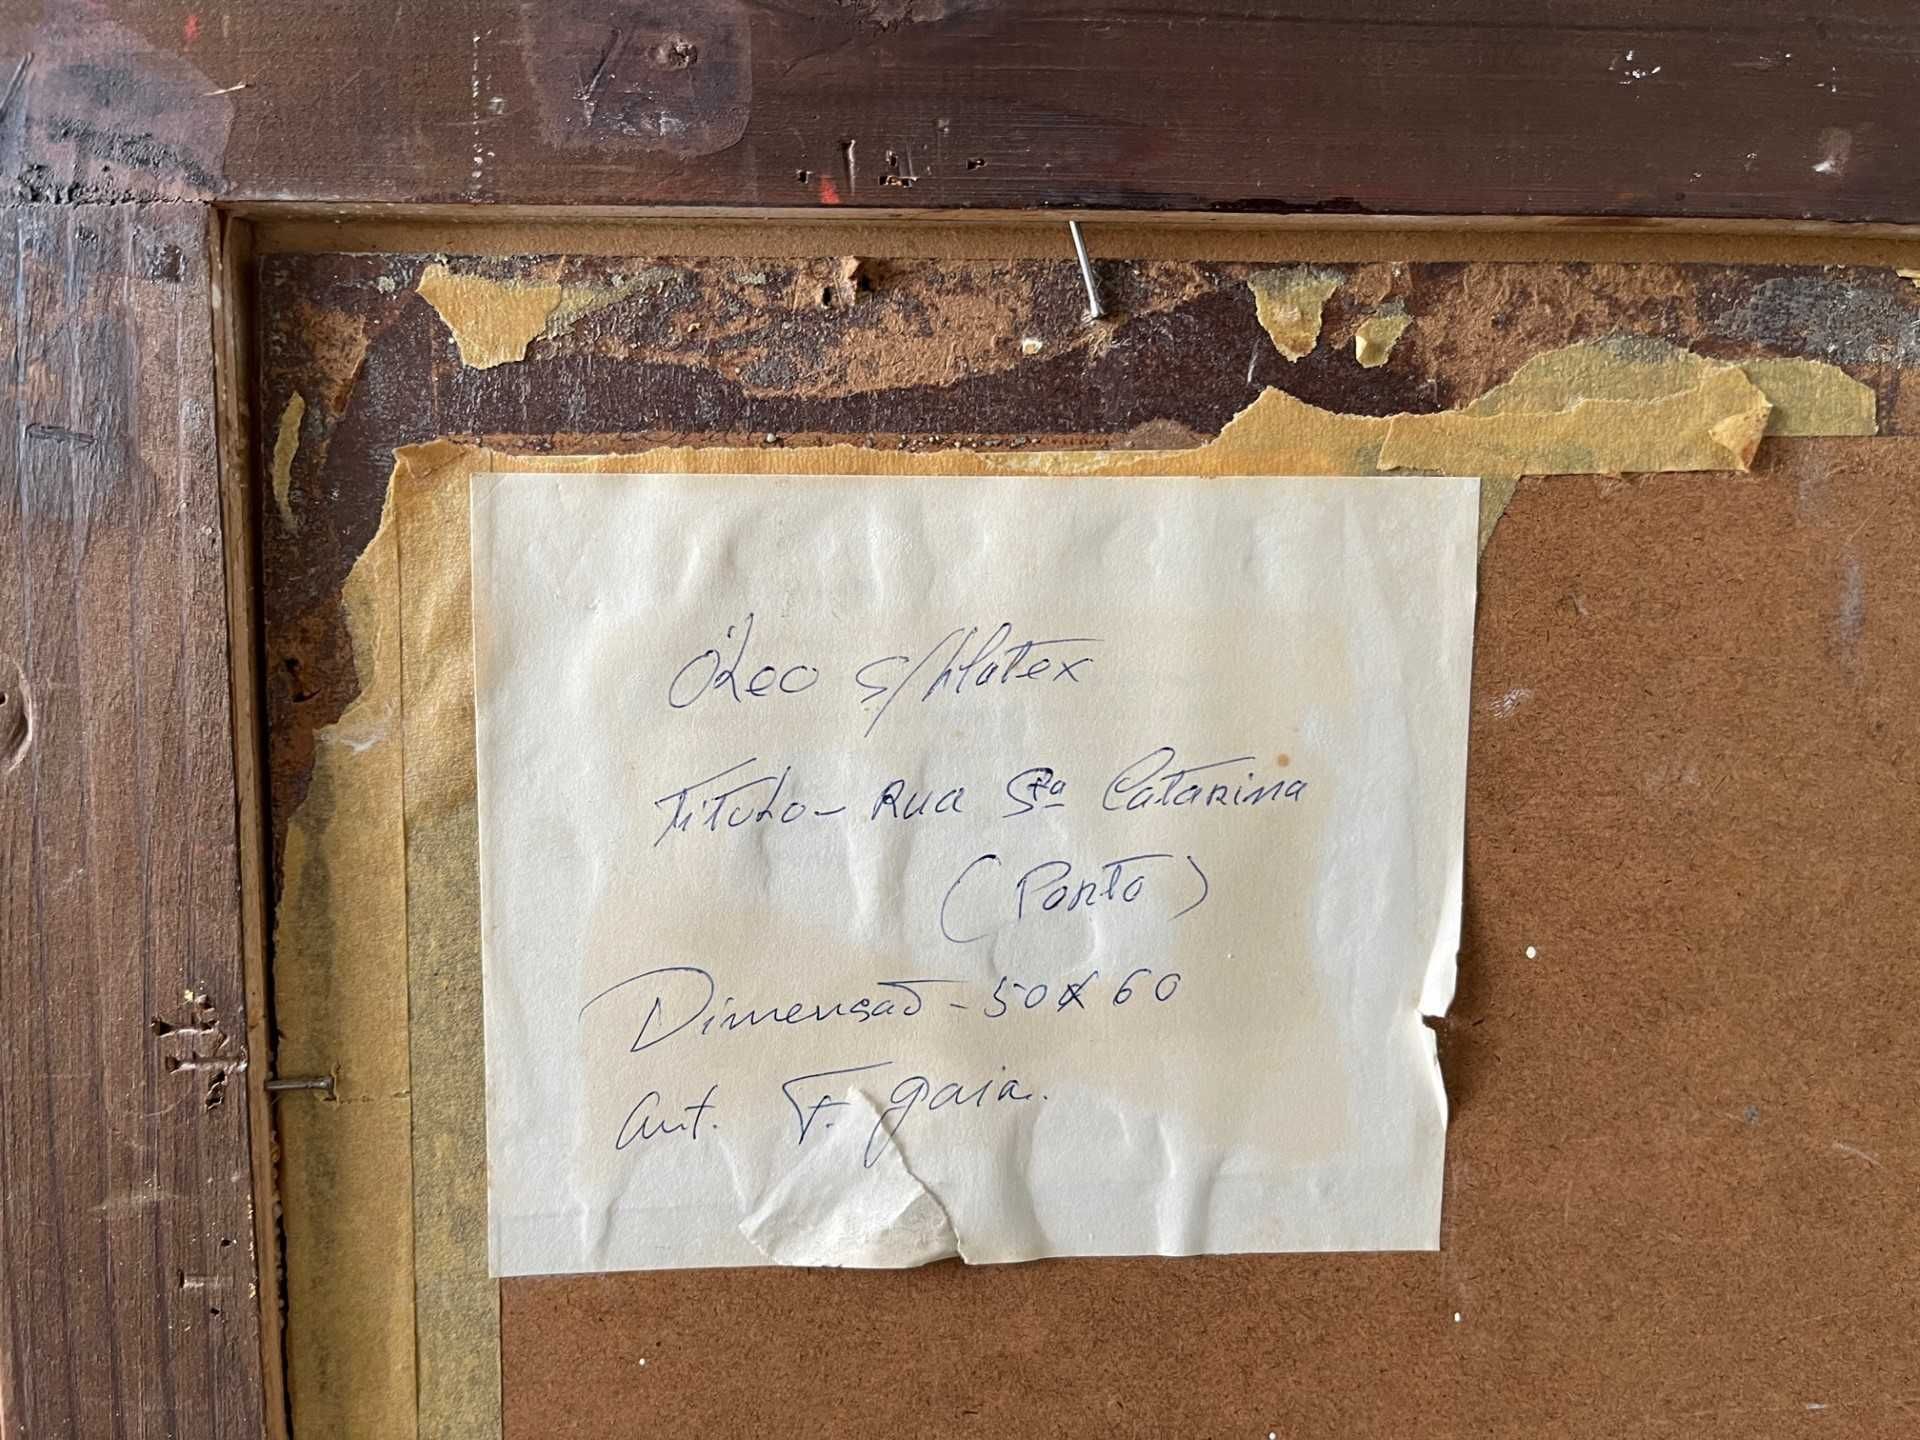 Óleo s/platex
Título - Rua Sta Catarina
(Porto)
Dimensão - 50 x 60
Aut. F. Gaia.